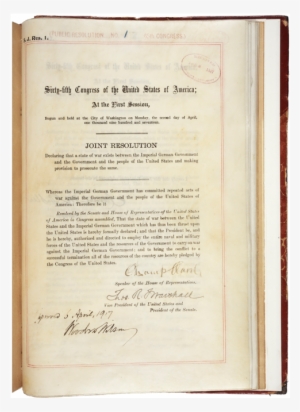 J. Res. 1.
Sixty-fifth Congress of the United States of America;
At the First Session,
Begun and held at the City of Washington on Monday, the second day of April,
one thousand nine hundred and seventeen.
JOINT RESOLUTION
Declaring that a state of war exists between the Imperial German Government
and the Government and the people of the United States and making
provision to prosecute the same.
Whereas the Imperial German Government has committed repeated acts of
war against the Government and the people of the United States of
America: Therefore be it
Resolved by the Senate and House of Representatives of the United States
of America in Congress assembled, That the state of war between the United
States and the Imperial German Government which has thus been thrust upon
the United States is hereby formally declared; and that the President be, and
he is hereby, authorized and directed to employ the entire naval and military
forces of the United States and the resources of the Government to carry on war
against the Imperial German Government; and to bring the conflict to a
successful termination all of the resources of the country are hereby pledged by
the Congress of the United States.
Champ Clark
Speaker of the House of Representatives.
Thos. R. Marshall
Vice President of the United States and
President of the Senate.
6 April, 1917
Woodrow Wilson